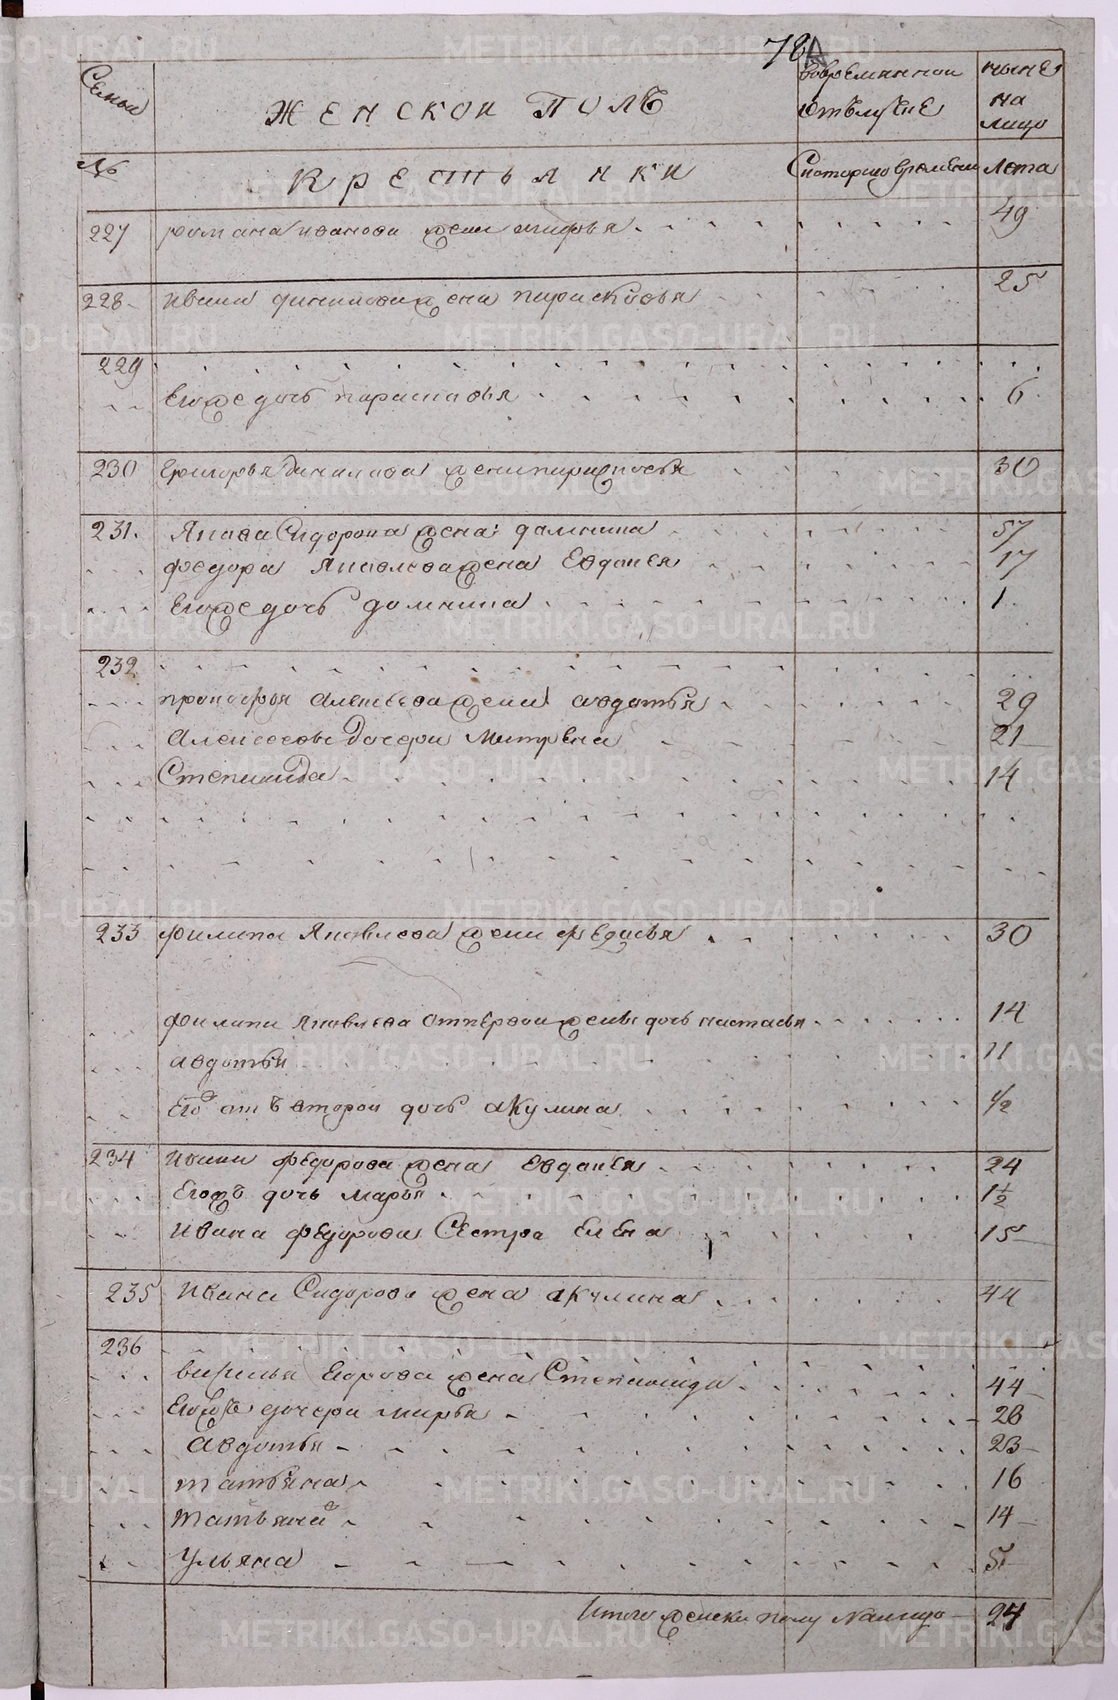 78
Семьи
ЖЕНСКОИ ПОЛЪ
вовременнои
отълучке
ныне
на
лицо
№
Крестьянки
Скоторого времени
лета
227 романа иванова жена марфья 49
228 ивана данилова жена парасковья 25
229
Егоже дочь парасковья 6
230 Григорья Данилова жена парасковья 30
231. Якова Сидорова жена домнина 57
федора Яковлева жена Евдокея 17
Егоже дочь домнина 1
232
прокофья алексеева жена авдотья 29
Алексеевы Дочери Митрена 21
Степанида 14
233 филипа Яковлева жена федосья 30
филипа Яковлева отпервои жены дочь настасья 14
авдотья 11
Его отъ второи дочь акулина 1/2
234 ивана федорова жена Евдокея 24
Егожъ дочь марья 1 1/2
ивана федорова Сестра Елена 15
235 ивана Сидорова жена акулина 44
236
василья Егорова жена Степанида 44
Егожъ дочери марья 26
авдотья 23
татьяна 16
татьяна 14
ульяна 5
Итого женска полу Налицо 24
METRIKI.GASO-URAL.RU